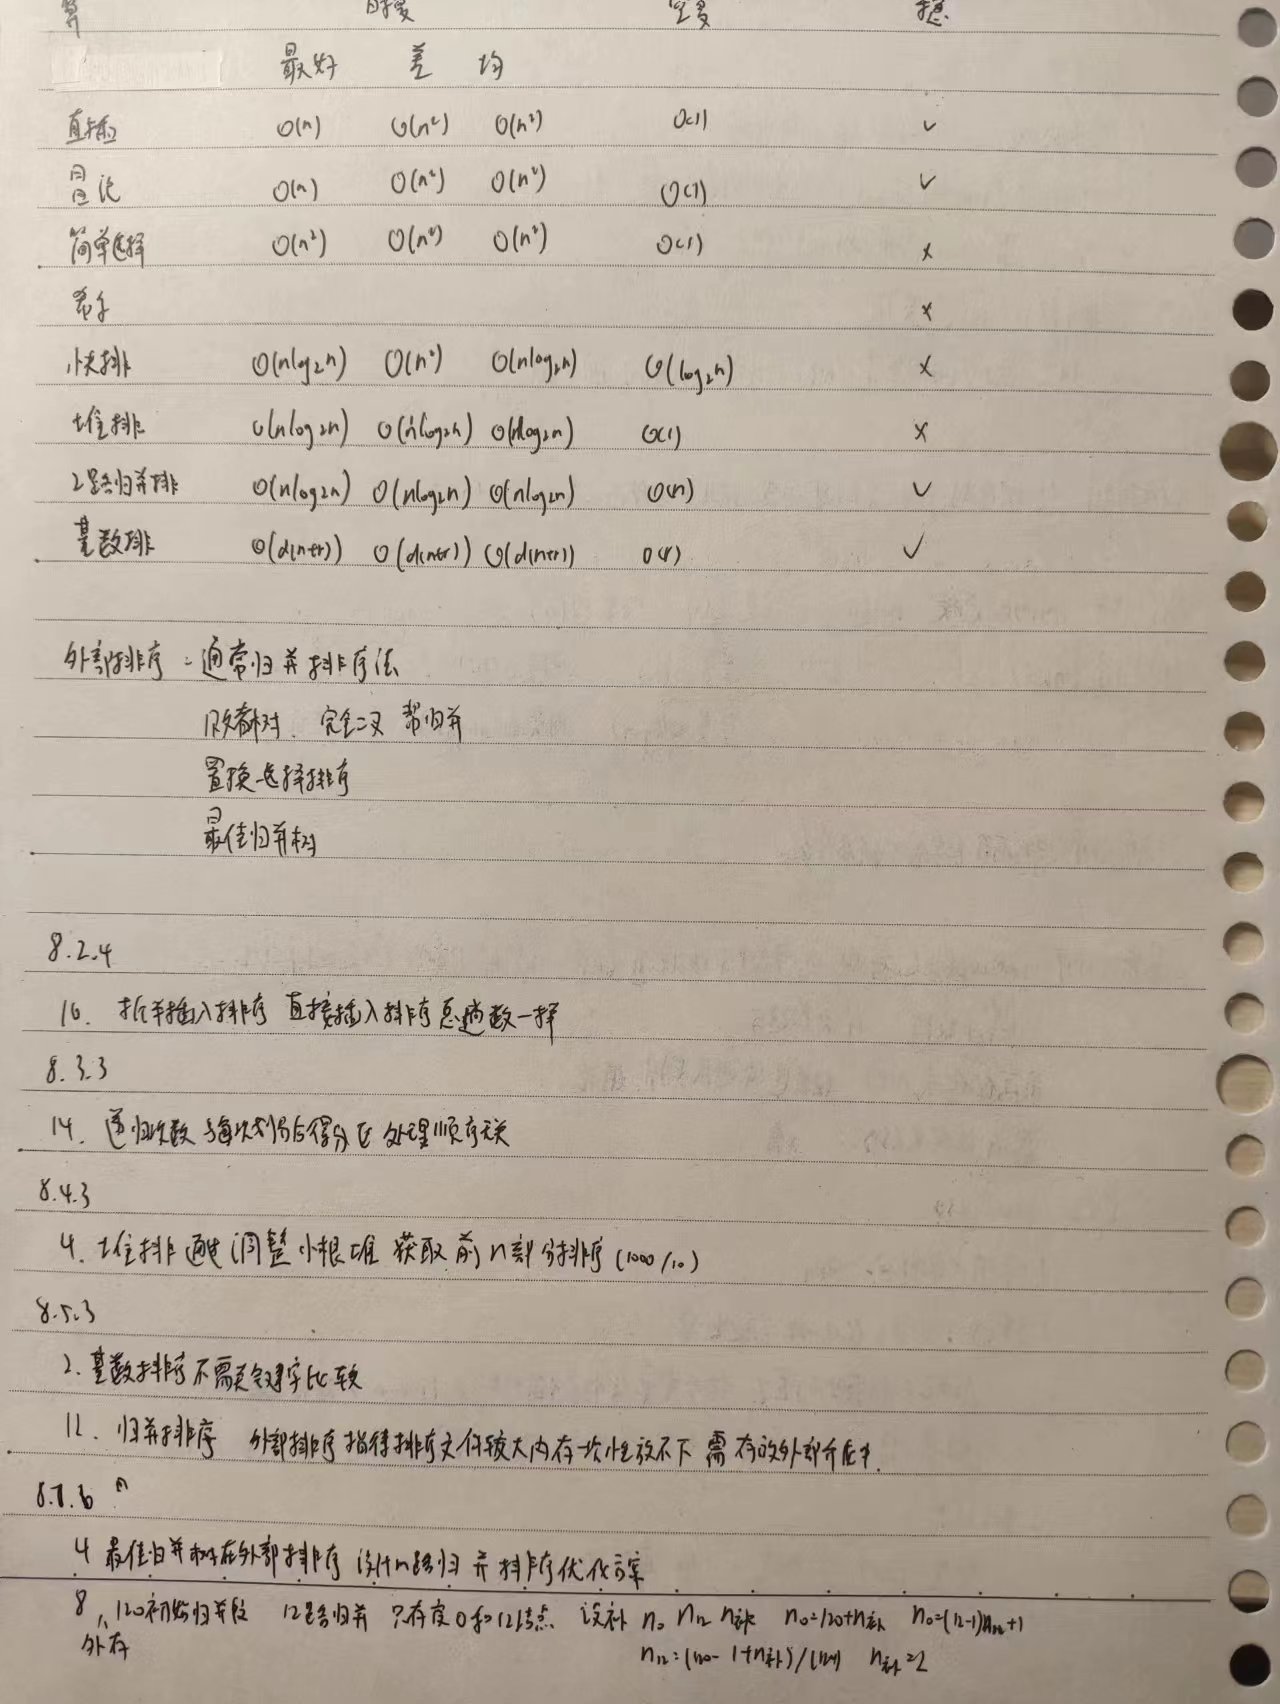 算 时间复 空复 稳
最好 差 均
直插 O(n) O(n²) O(n²) O(1) ✓
冒泡 O(n) O(n²) O(n²) O(1) ✓
简单选择 O(n²) O(n²) O(n²) O(1) ×
希尔 ×
快排 O(nlog₂n) O(n²) O(nlog₂n) O(log₂n) ×
堆排 O(nlog₂n) O(nlog₂n) O(nlog₂n) O(1) ×
2路归并排 O(nlog₂n) O(nlog₂n) O(nlog₂n) O(n) ✓
基数排 O(d(n+r)) O(d(n+r)) O(d(n+r)) O(r) ✓
外部排序: 通常归并排序法
败者树. 完全二叉 帮归并
置换-选择排序
最佳归并树
8.2.4
16. 折半插入排序 直接插入排序总趟数一样
8.3.3
14. 递归次数与每次划分后得分区处理顺序无关
8.4.3
4. 堆排 通过调整小根堆 获取前n部分排序(1000/10)
8.5.3
2. 基数排序不需关键字比较
12. 归并排序 外部排序指待排序文件较大内存一次性放不下 需存放外部介质中.
4 最佳归并树在外部排序 设计m路归并排序优化方案
8. 120初始归并段 12路归并 只存度0和12结点 设补 n₀ n₁₂ n补 n₀=120+n补 n₀=(12-1)n₁₂+1
外存 n₁₂=(120-1+n补)/(12-1) n补=2